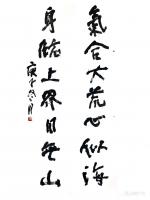 氣合大荒心似海
身臨上界目無山